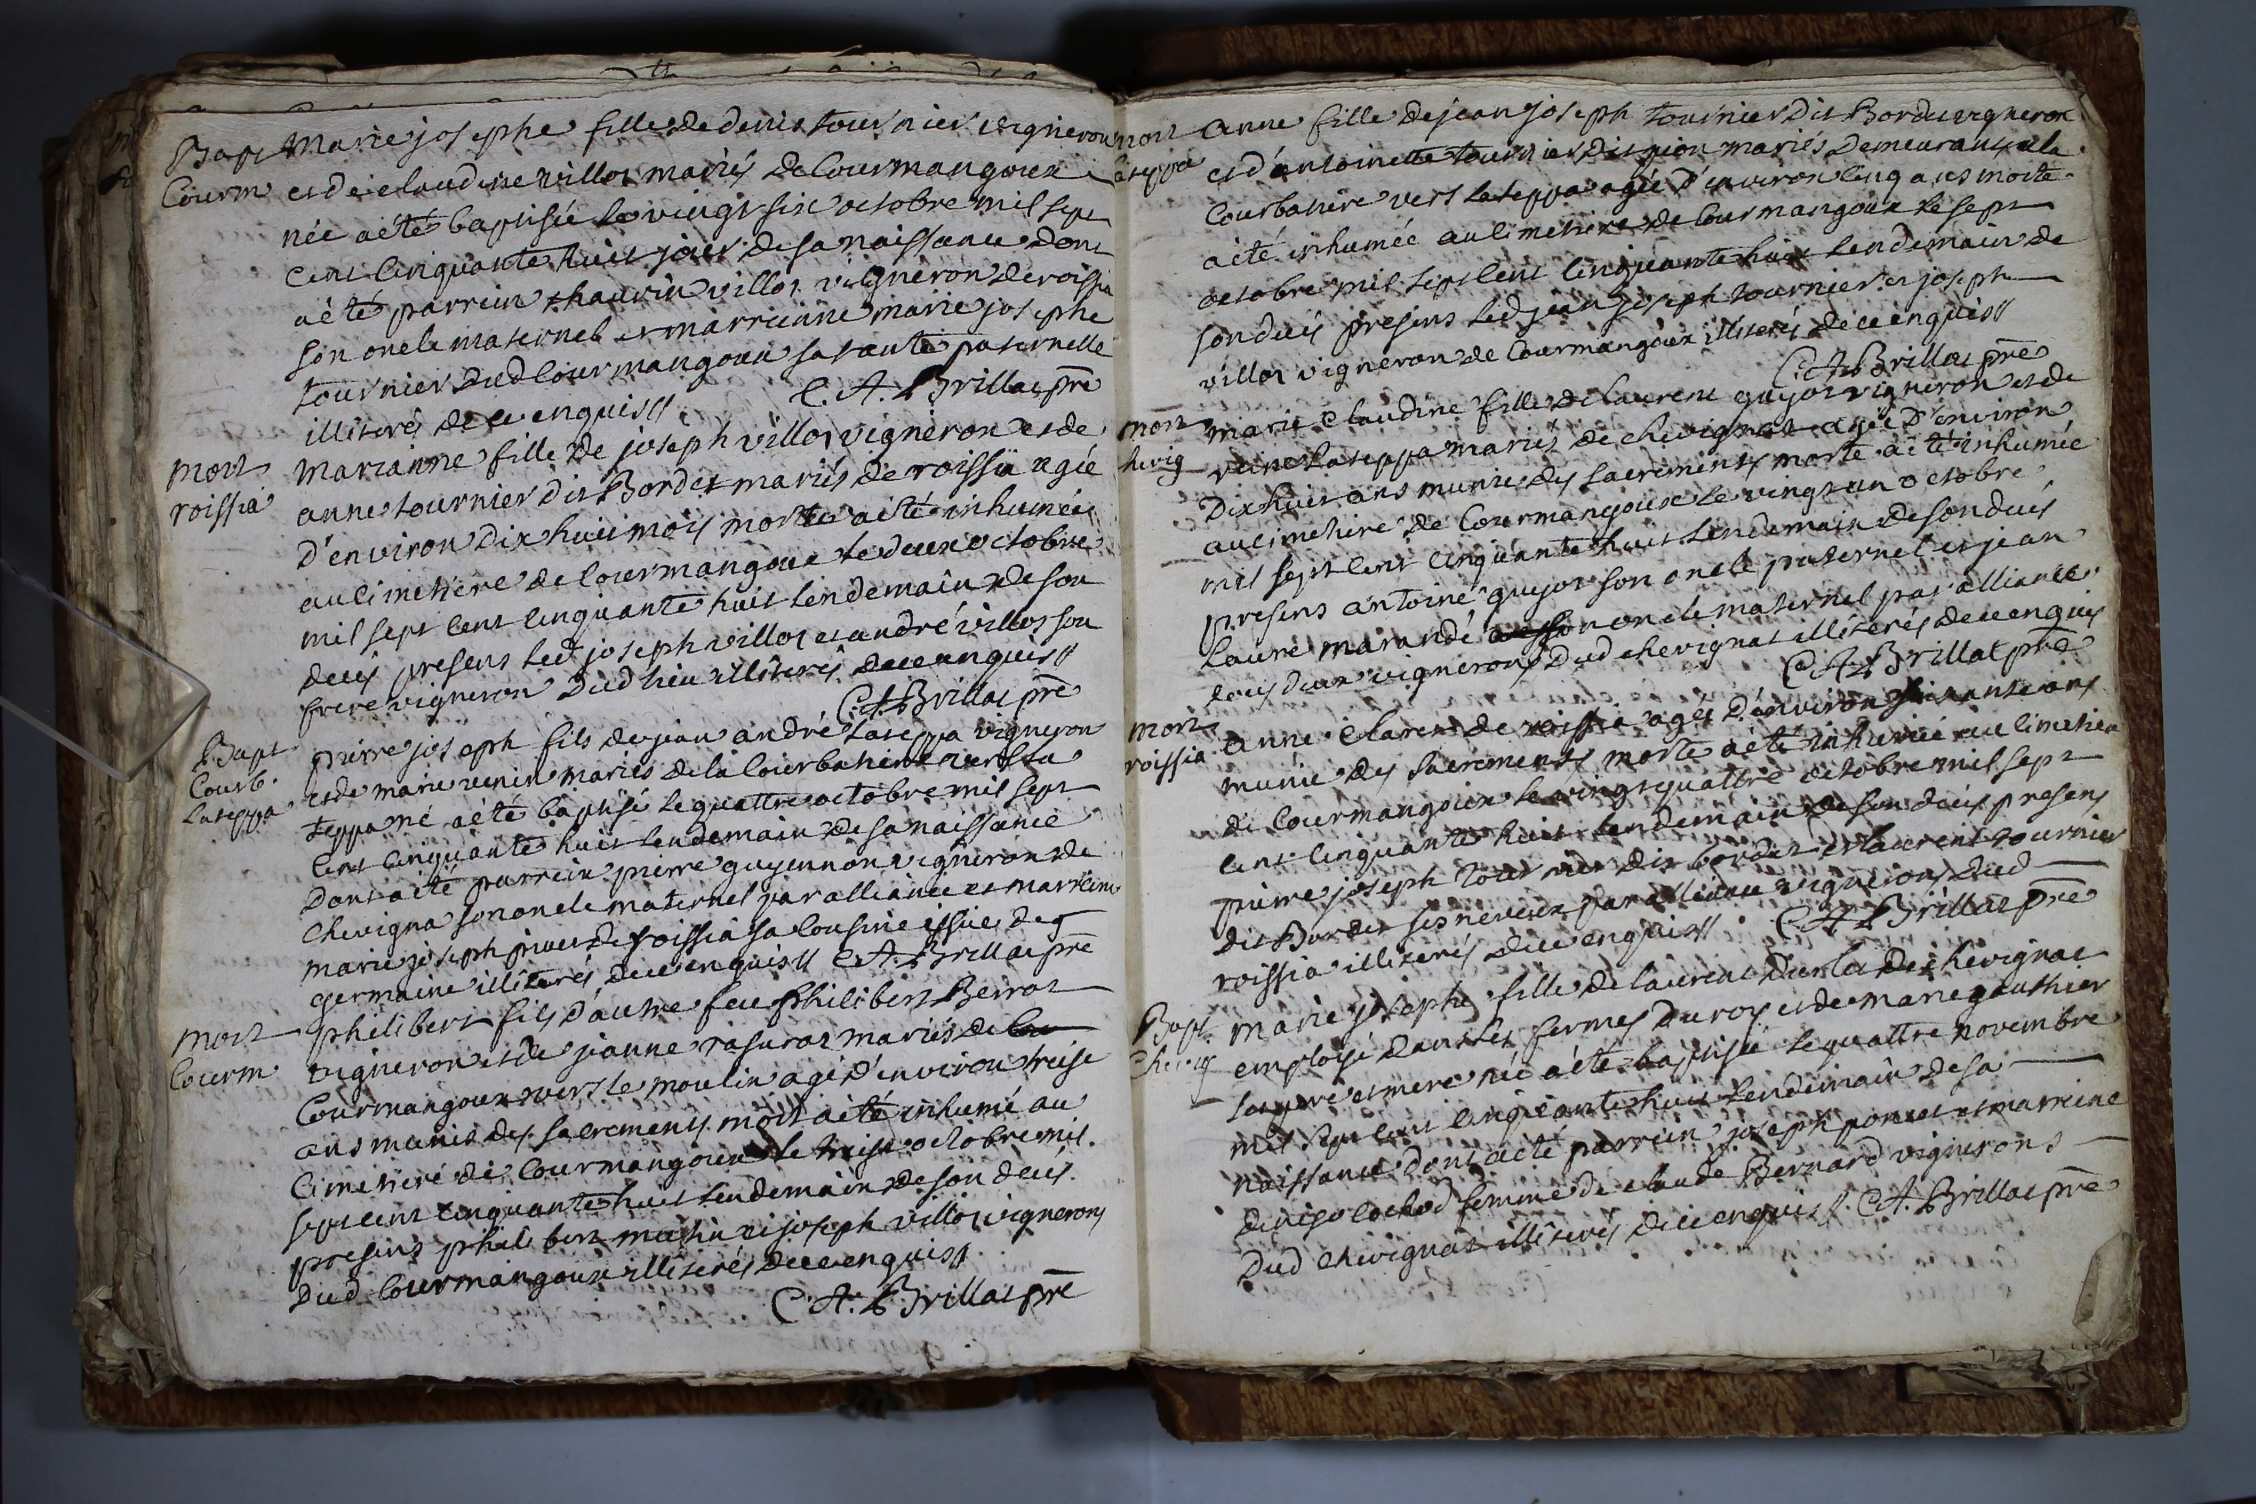 Bapt Marie josephe fille de denis tournier vigneron
Courm et de claudine villot mariés de Courmangoux
née a été baptisée le vingt six octobre mil sept
cent cinquante huit jour de sa naissance dont
a été parrein villot vigneron de roissia
son oncle maternel et marrienne marie josephe
tournier dud Courmangoux sa tante paternelle
illiterés de ce enquis
C. A. Brillat pre
mort Marianne fille de joseph villot vigneron et de
roissia anne tournier dit Bordet mariés de roissia agée
d'environ dix huit mois morte a été inhumée
au cimetiere de Courmangoux le deux octobre
mil sept cent cinquante huit lendemain de son
decés presens led joseph villot et andré villot son
frere vigneron dud lieu illiterés de ce enquis
C. A. Brillat pre
Bapt pierre joseph fils de jean andré lateppa vigneron
Courb. et de marie mariés de la Courbatiere vers la
Lateppa teppa né a été baptisé le quattre octobre mil sept
cent cinquante huit lendemain de sa naissance
dont a été parrein pierre guyennon vigneron de
chevigna son oncle maternel par alliance et marreine
marie joseph de roissia sa cousine issue de
germaine illiterés de ce enquis C. A. Brillat pre
mort philibert fils d'autre feu philibert Berrot
Courm vigneron et de jeanne rasurat mariés de
Courmangoux vers le moulin agé d'environ treise
ans munis des sacremens mort a été inhumé au
cimetiere de Courmangoux le treise octobre mil
sept cent cinquante huit lendemain de son decés
presens philibert et joseph villot vignerons
dud Courmangoux illiterés de ce enquis
C. A. Brillat pre
mort anne fille de jean joseph tournier dit Bordet vigneron
lateppa et d'antoinette tournier dit pion mariés demeurants a la
Courbatiere vers lateppa agée d'environ cinq ans morte
a été inhumée au cimetiere de Courmangoux le sept
octobre mil sept cent cinquante huit lendemain de
son decés presens led jean joseph tournier et joseph
villot vigneron de Courmangoux illiterés de ce enquis
C. A. Brillat pre
mort marie claudine fille de laurent guyot vigneron et de
chevig reine lateppa mariés de chevignat agée d'environ
dix huit ans munie des sacremens morte a été inhumée
au cimetiere de Courmangoux le vingt un octobre
mil sept cent cinquante huit lendemain de son decés
presens antoine guyot son oncle paternel et jean
laure marandé oncle maternel par alliance
tous deux vignerons dud chevignat illiterés de ce enquis
C. A. Brillat pre
mort anne clarer de roissia agée d'environ ans
roissia munie des sacremens morte a été inhumée au cimetiere
de Courmangoux le vingt quattre octobre mil sept
cent cinquante huit lendemain de son decés presens
pierre joseph tournier dit bordet et laurent tournier
dit Bordet ses neveux par alliance vignerons dud
roissia illiterés de ce enquis C. A. Brillat pre
Bapt. marie josephe fille de laurent de chevignat
Chevig employé dans les fermes du roy et de marie gauthier
ses pere et mere née a été baptisée le quattre novembre
mil sept cent cinquante huit lendemain de sa
naissance dont a été parrein joseph poncet et marreine
denise cochod femme de claude Bernard vignerons
dud chevignat illiterés de ce enquis. C. A. Brillat pre